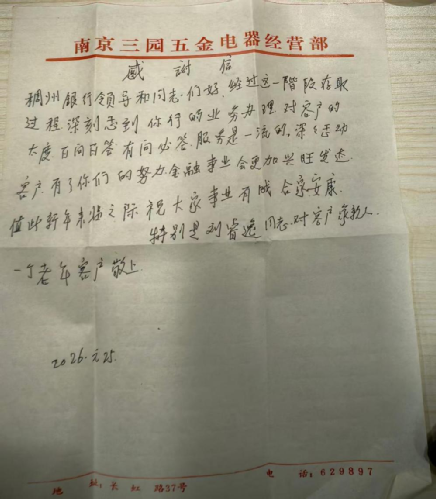 南京三园五金电器经营部
感谢信
稠州银行领导和同志们好，经过这一阶段存取
过程深刻感到你行的业务办理对客户的
大度百问百答有问必答，服务是一流的，深得
客户，有了你们的努力金融事业会更加兴旺发达
值此新年来临之际祝大家事业有成合家安康
特别是刘睿逸同志，对客户
一个老年客户敬上
2026.元25.
地 址：长虹路37号
电 话：629897